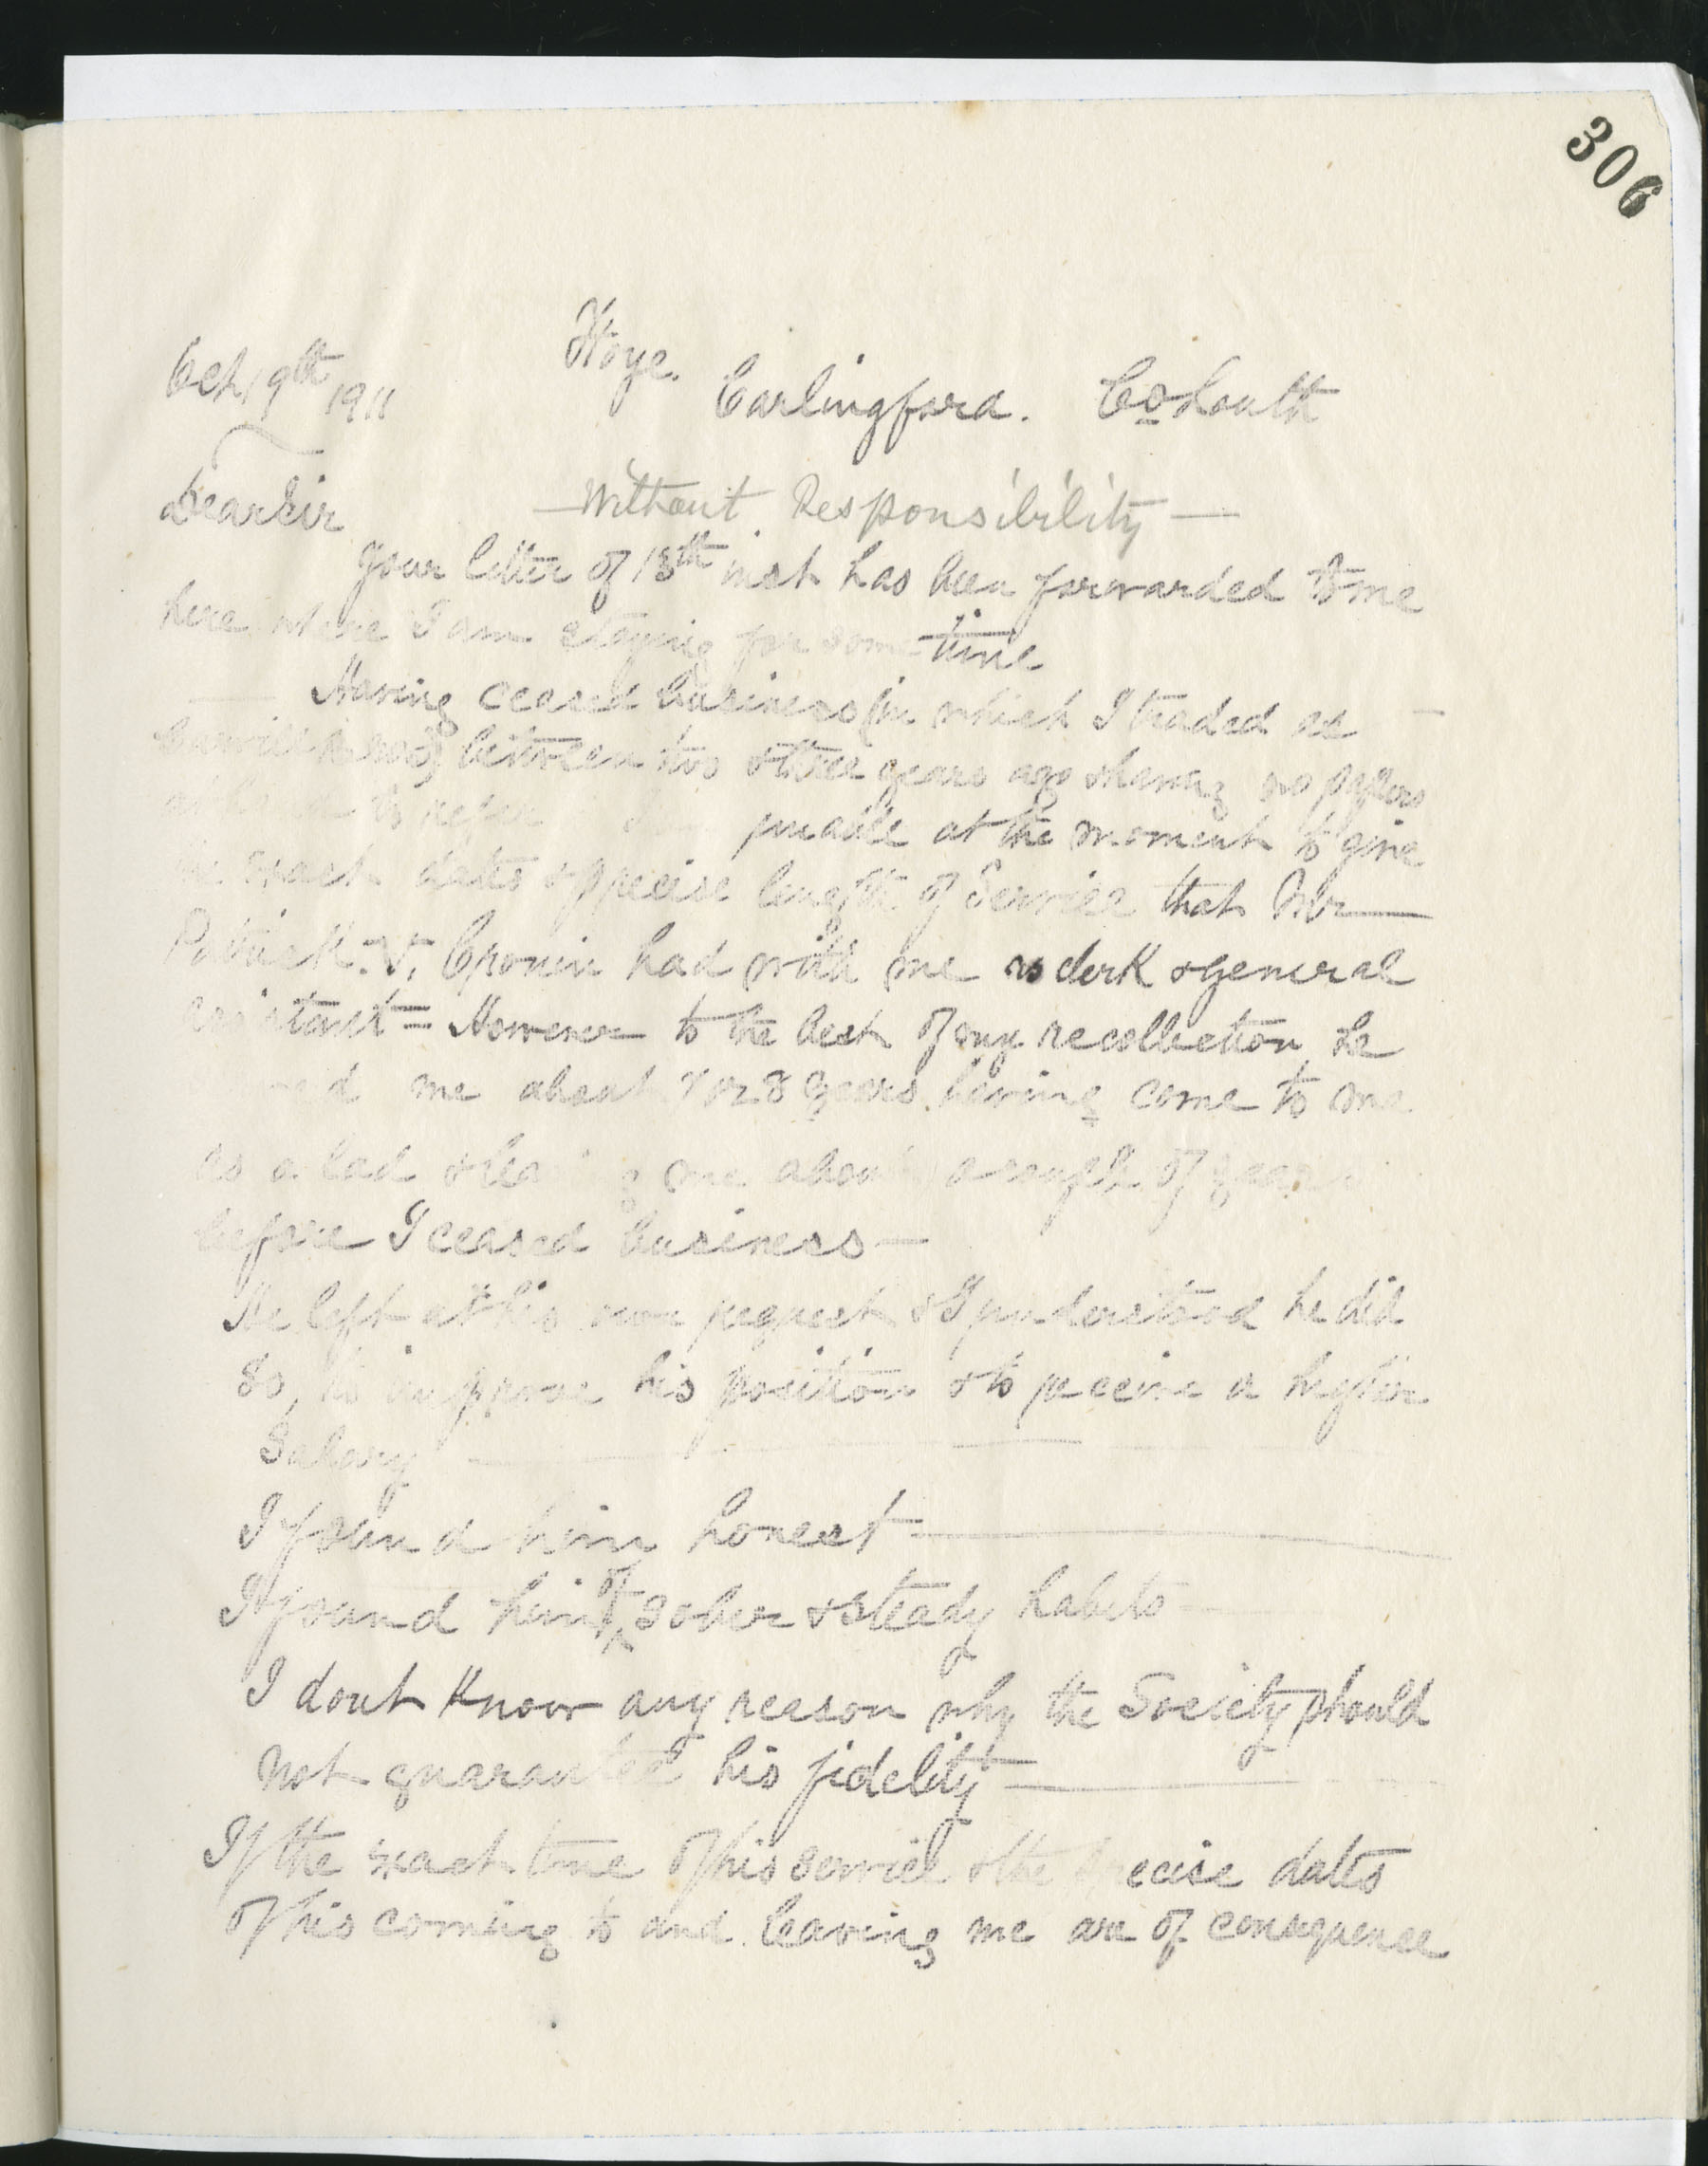 306
Hoye.
Oct 19th 1911
Carlingford. Co Louth
Dear Sir
— Without Responsibility —
Your letter of 18th inst has been forwarded to me
here where I am staying for some time
Having ceased business (in which I traded as
between two & three years ago & having no papers
to refer unable at the moment to give
exact dates & precise length of Service that Mr
Patrick. V. Cronin had with me as clerk & general
assistant = However to the best of my recollection he
me about 7 or 8 years having come to me
as a lad & leaving me about a couple of years
before I ceased business —
He left at his own request & I understood he did
so, to improve his position & to receive a higher
Salary
I found him honest —
I found him of sober & steady habits
I dont know any reason why the Society should
not guarantee his fidelity —
If the exact time of his service & the precise dates
of his coming to and leaving me are of consequence